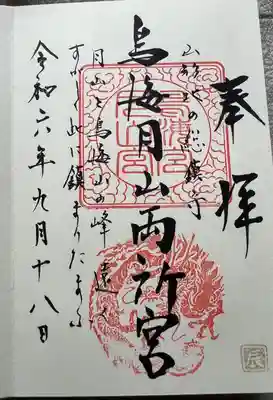 奉拝
山 鎮守
鳥海月山両所宮
月山と鳥海山の峰遠く
すが 此に鎮まりたまふ
令和六年九月十八日
辰